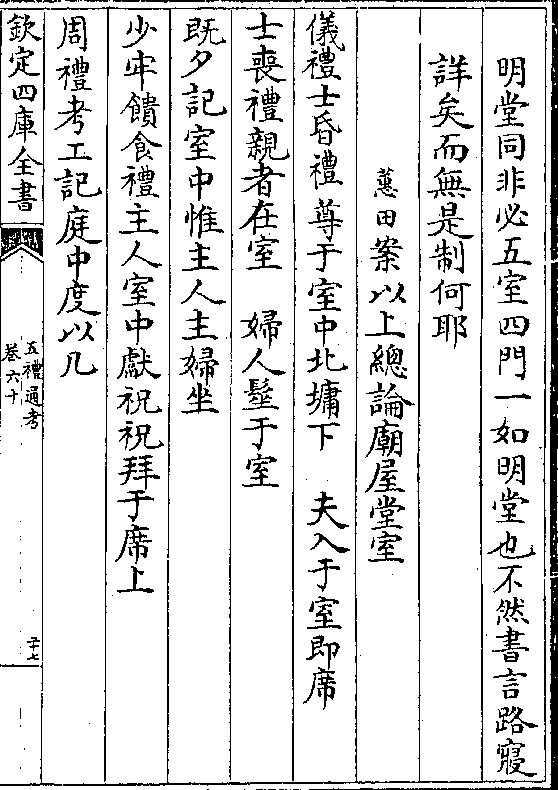 明堂同非必五室四門一如明堂也不然書言路寢
詳矣而無是制何耶
蕙田案以上總論廟屋堂室
儀禮士昏禮尊于室中北墉下　夫入于室即席
士喪禮親者在室　婦人髽于室
既夕記室中惟主人主婦坐
少牢饋食禮主人室中獻祝祝拜于席上
周禮考工記庭中度以几
欽定四庫全書
五禮通考
卷六十
二十七